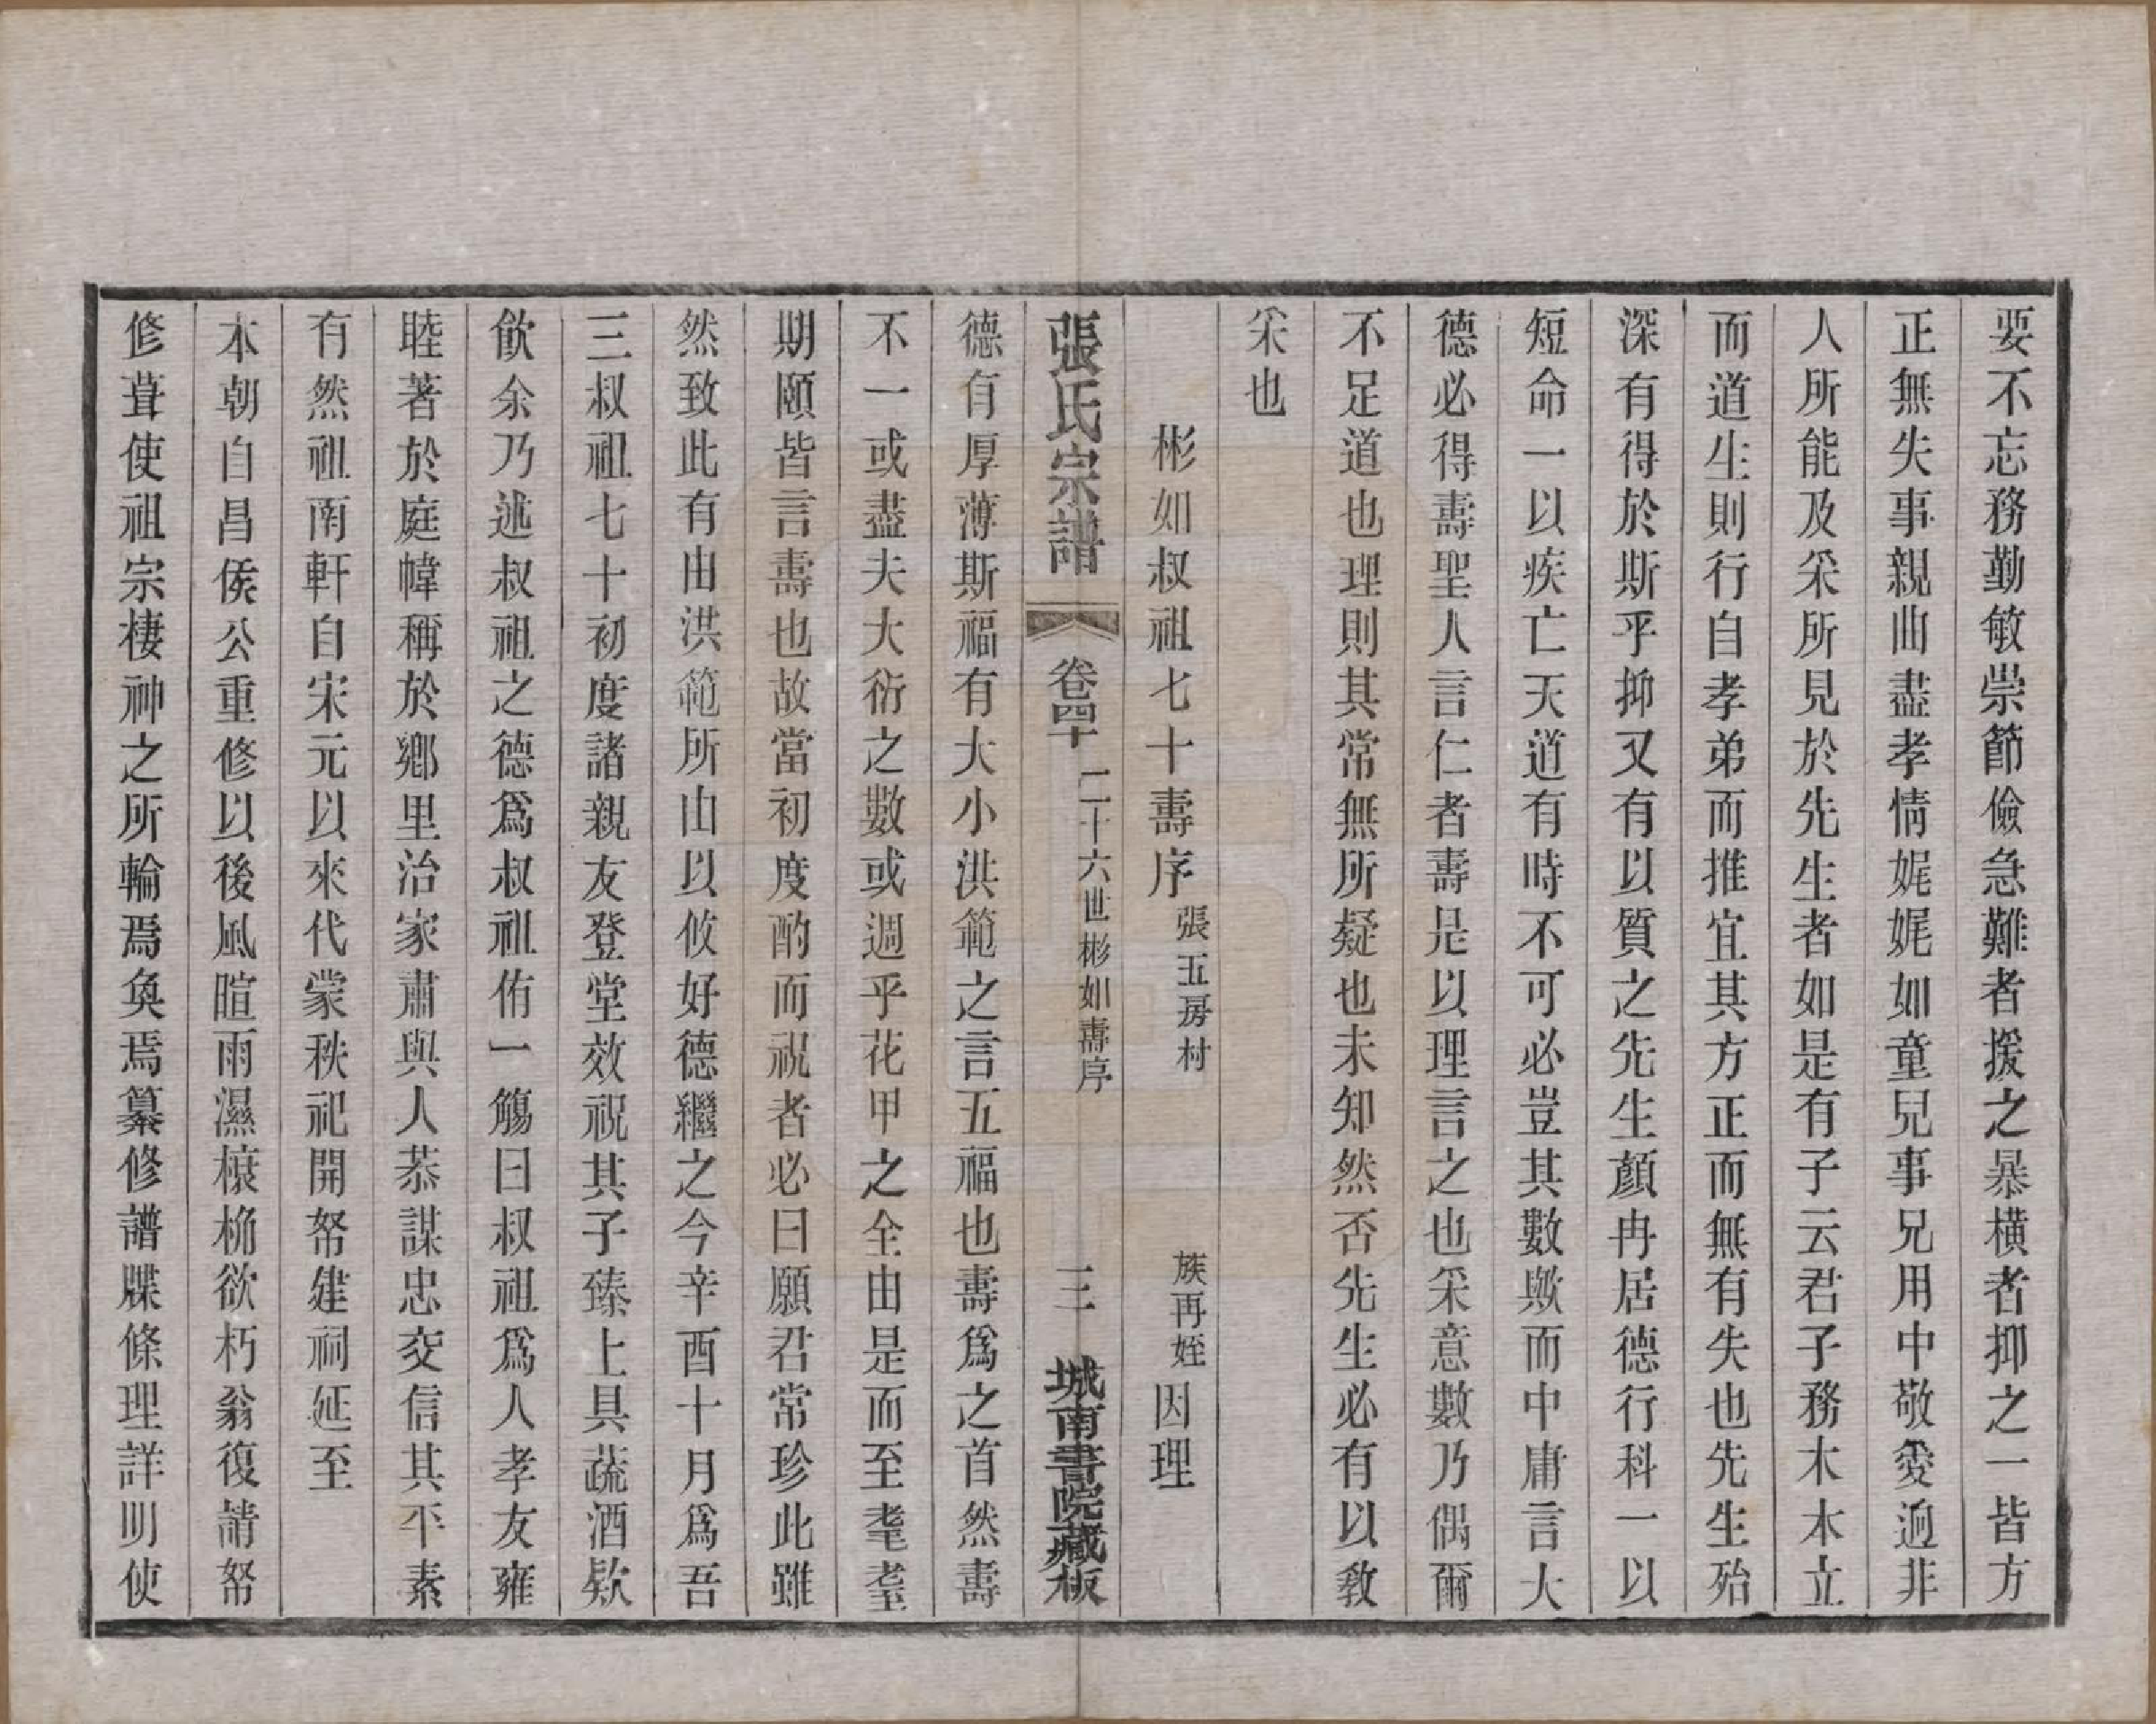 要不忘務勤敏崇節儉急難者援之暴橫者抑之一皆方
正無失事親曲盡孝情娓娓如童兒事兄用中敬愛逈非
人所能及采所見於先生者如是有子云君子務木本立
而道生則行自孝弟而推宜其方正而無有失也先生殆
深有得於斯乎抑又有以質之先生顏冉居德行科一以
短命一以疾亡天道有時不可必豈其數歟而中庸言大
德必得壽聖人言仁者壽是以理言之也采意數乃偶爾
不足道也理則其常無所疑也未知然否先生必有以敎
采也
彬如叔祖七十壽序 張五房村 族再姪因理
張氏宗譜 卷四十 二十六世彬如壽序 三 城南書院藏板
德有厚薄斯福有大小洪範之言五福也壽爲之首然壽
不一或盡夫大衍之數或週乎花甲之全由是而至耄耋
期頤皆言壽也故當初度酌而祝者必曰願君常珍此雖
然致此有由洪範所由以攸好德繼之今辛酉十月爲吾
三叔祖七十初度諸親友登堂效祝其子臻上具蔬酒欵
飮余乃述叔祖之德爲叔祖侑一觴曰叔祖爲人孝友雍
睦著於庭幃稱於鄉里治家肅與人恭謀忠交信其平素
有然祖南軒自宋元以來代蒙秩祀開帑建祠延至
本朝自昌侯公重修以後風暄雨濕榱桷欲朽翁復請帑
修葺使祖宗棲神之所輪焉奐焉纂修譜牒條理詳明使